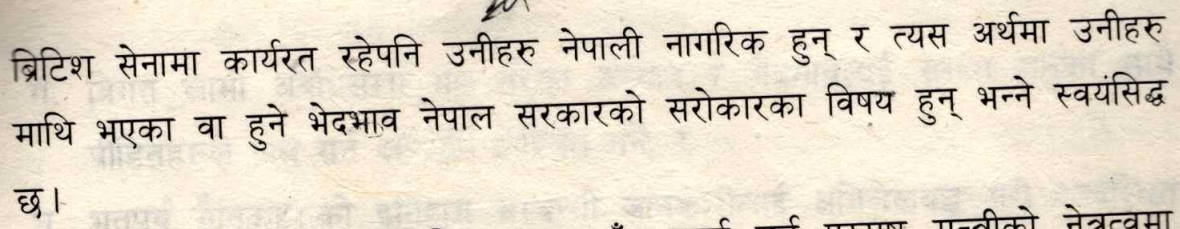 ब्रिटिश सेनामा कार्यरत रहेपनि उनीहरु नेपाली नागरिक हुन् र त्यस अर्थमा उनीहरु
माथि भएका वा हुने भेदभाव नेपाल सरकारको सरोकारका विषय हुन् भन्ने स्वयंसिद्ध
छ।
नेतृत्वमा